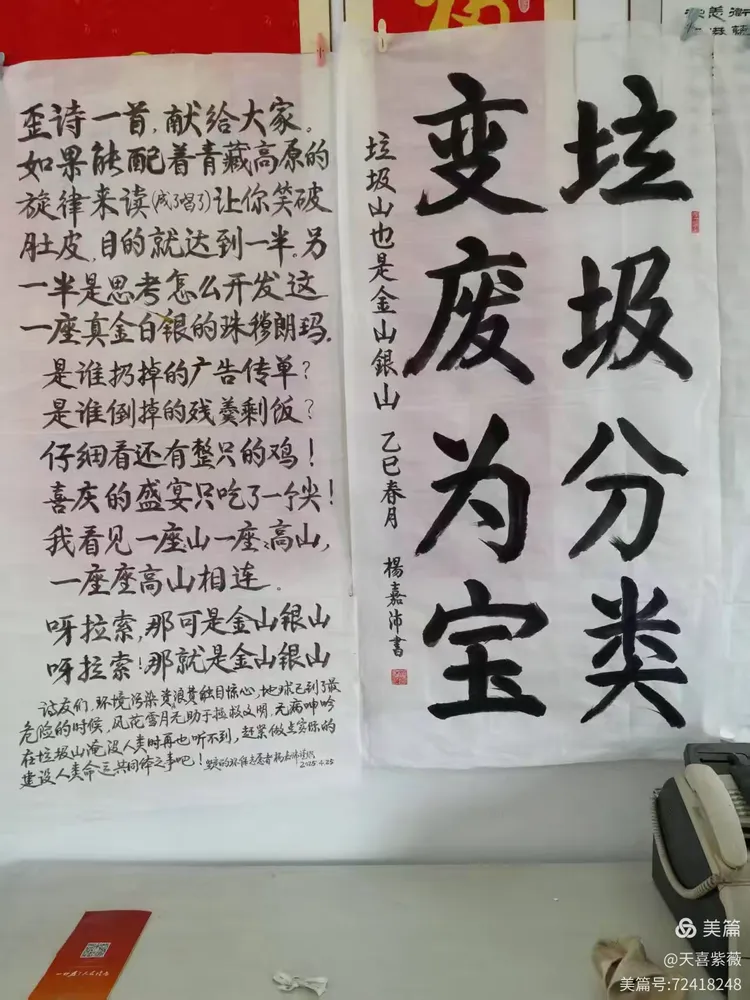 歪诗一首，献给大家。
如果能配着青藏高原的
旋律来读（成了唱了）让你笑破
肚皮，目的就达到一半。另
一半是思考怎么开发这
一座真金白银的珠穆朗玛。
是谁扔掉的广告传单？
是谁倒掉的残羹剩饭？
仔细看还有整只的鸡！
喜庆的盛宴只吃了一个尖！
我看见一座山一座座高山，
一座座高山相连。
呀拉索，那可是金山银山
呀拉索！那就是金山银山
诗友们，环境污染资源浪费触目惊心，地球已到了最
危险的时候，风花雪月无助于拯救文明，无病呻吟
在垃圾山淹没人类时再也听不到，赶紧做点实际的
建设人类命运共同体之事吧！
2025.4.25
垃圾分类
变废为宝
垃圾山也是金山銀山 乙巳春月 楊嘉沛書
美篇
@天喜紫薇
美篇号:72418248